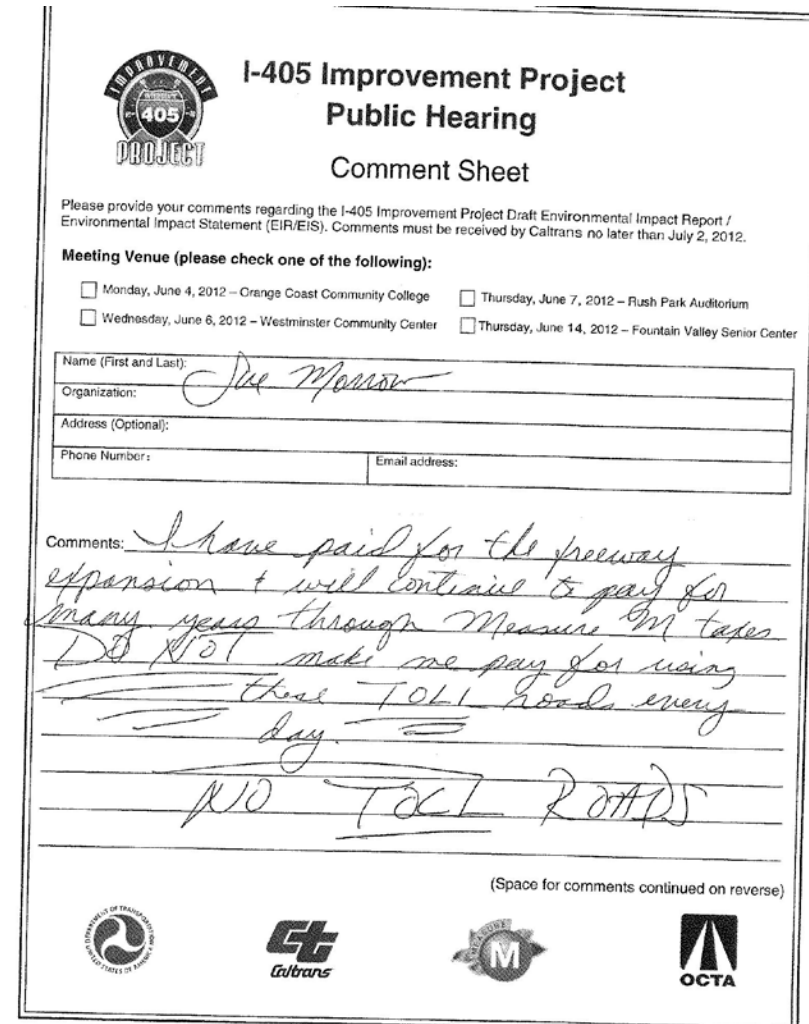 IMPROVEMENT
405
PROJECT
I-405 Improvement Project
Public Hearing
Comment Sheet
Please provide your comments regarding the I-405 Improvement Project Draft Environmental Impact Report /
Environmental Impact Statement (EIR/EIS). Comments must be received by Caltrans no later than July 2, 2012.
Meeting Venue (please check one of the following):
Monday, June 4, 2012 – Orange Coast Community College
Thursday, June 7, 2012 – Rush Park Auditorium
Wednesday, June 6, 2012 – Westminster Community Center
Thursday, June 14, 2012 – Fountain Valley Senior Center
Name (First and Last): Sue Morrow
Organization:
Address (Optional):
Phone Number:
Email address:
Comments: I have paid for the freeway
expansion + will continue to pay for
many years through Measure M taxes
DO NOT make me pay for using
these TOLL roads every
day.
NO TOLL ROADS
(Space for comments continued on reverse)
DEPARTMENT OF TRANSPORTATION
UNITED STATES OF AMERICA
Ct
Caltrans
MEASURE
M
OCTA